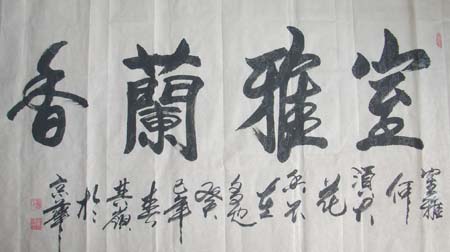 室雅蘭香
室雅
何
須大
花
香不
在
多也
癸
巳年
春
於
京華